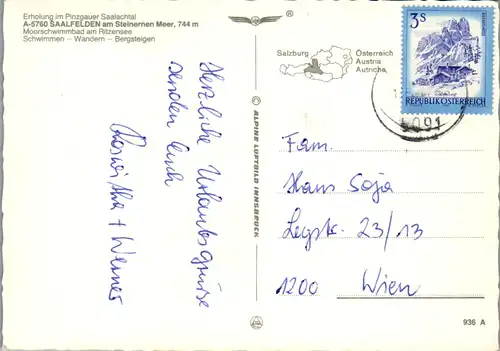 Erholung im Pinzgauer Saalachtal
A-5760 SAALFELDEN am Steinernen Meer, 744 m
Moorschwimmbad am Ritzensee
Schwimmen – Wandern – Bergsteigen
®
Herzliche Urlaubsgrüsse
senden Euch
Roswitha + Werner
© ALPINE LUFTBILD INNSBRUCK
Salzburg
Österreich
Austria
Autriche
3S
REPUBLIK ÖSTERREICH
5091
Fam.
Hans Soja
23/13
1200 Wien
936 A